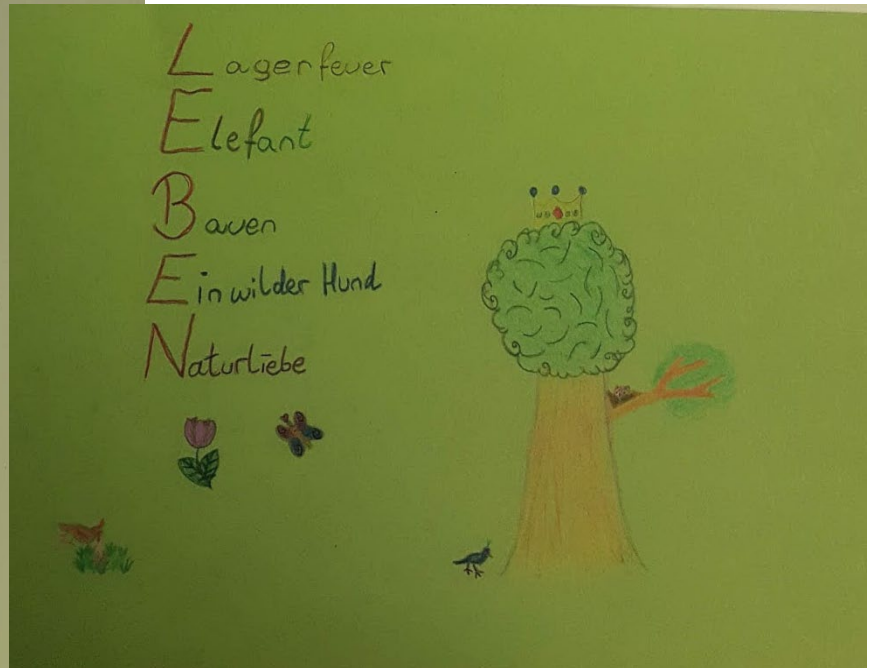 Lagerfeuer
Elefant
Bauen
Ein wilder Hund
Naturliebe